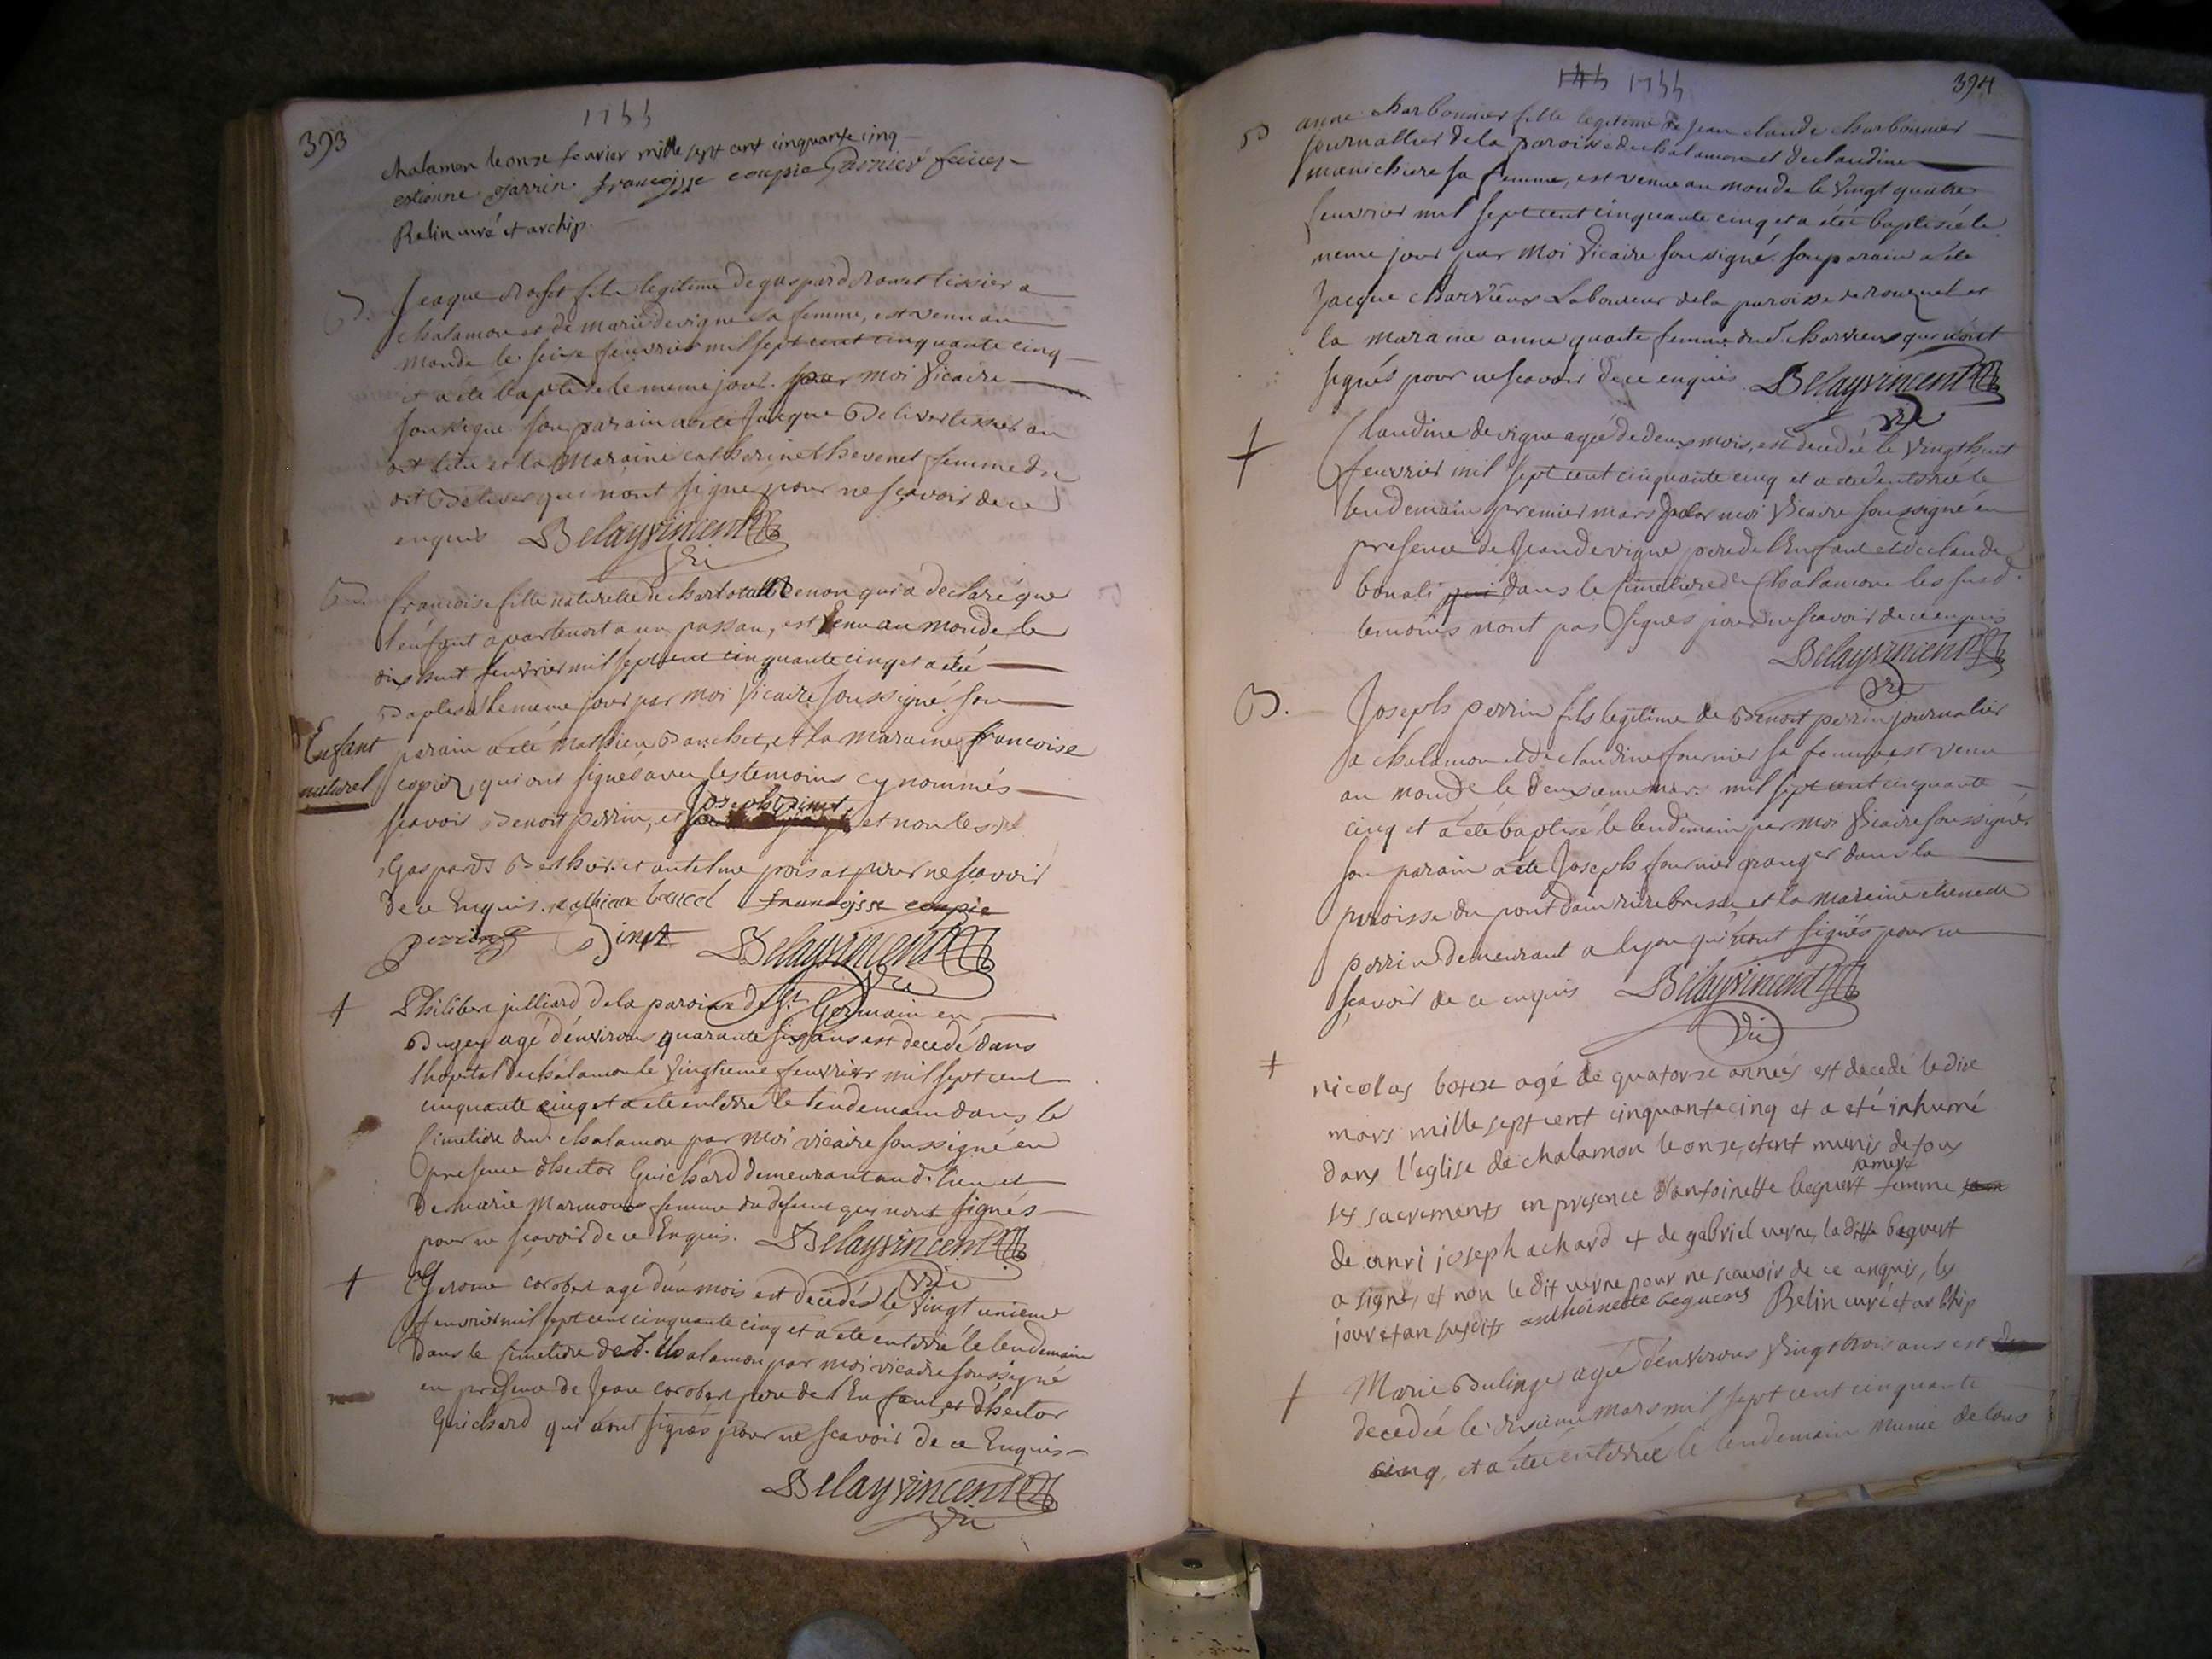 393
1755
chalamon le onze fevrier mille sept cent cinquante cinq
estienne Jarrin. francojsse coupie Garnier
Relin curé et archip.
B. Jeaque fils legitime de gaspard tissier a
chalamon et de marie devigne sa femme, est venu au
monde le seize feuvrier mil sept cent cinquante cinq
et a ete baptisé le meme jour. par moi Vicaire
soussigné son parain a été Jacque Deliver tissier au
dit lieu et la Maraine catherine thevenet femme du
dit Deliver qui n'ont signé pour ne sçavoir de ce
enquis Belayvincent
Vic
B. francoise fille naturelle de charlotte Benon qui a declaré que
l'enfant apartenoit a un passan, est venu au monde le
dix huit feuvrier mil sept cent cinquante cinq et a été
baptisé le meme jour par moi Vicaire soussigné son
Enfant parain a été mathieu et la maraine francoise
naturel copier, qui ont signés avec les temoins cy nommés
scavoir Benoit perrin, et Joseph pinet et non les
Gaspard Berthier et antelme poisat pour ne scavoir
de ce Enquis. francojsse coupie
perrin pinet Belayvincent
Vic
+ Philibert julliard de la paroisse de St. Germain en
Bugey agé d'environs quarante six ans est decedé dans
lhopital de chalamon le Vingtieme feuvrier mil sept cent
cinquante cinq et a ete enterré le lendemain dans le
Cimetiere dud. chalamon par moi vicaire soussigné en
presence dhector Guichard demeurant aud. lieu et
de marie femme du defunt qui n'ont signés
pour ne sçavoir de ce Enquis. Belayvincent
Vic
+ Gerome corober agé d'un mois est decedés le Vingt unieme
feuvrier mil sept cent cinquante cinq et a été enterré le lendemain
dans le Cimetiere de d. chalamon par moi vicaire soussigné
en presence de Jean corober pere de l'Enfant, et d'hector
Guichard qui n'ont signés pour ne scavoir de ce Enquis
Belayvincent
Vic
1755
394
B anne charbonnier fille legitime de jean claude charbonnier
journallier de la paroisse de chalamon et de claudine
manichiere sa femme, est venue au monde le Vingt quatre
feuvrier mil sept cent cinquante cinq et a été baptisée le
meme jour par moi Vicaire soussigné. son parain a été
Jacque charvieux Laboureur de la paroisse de ronzuel et
la maraine anne quarte femme dud. charvieux qui n'ont
signés pour ne scavoir de ce enquis Belayvincent
Vic
+ Claudine devigne agée de deux mois, est decedée le Vingt huit
feuvrier mil sept cent cinquante cinq et a été enterrée le
lendemain premier mars par moi Vicaire soussigné en
presence de Jean devigne pere de l'Enfant et de claude
bonati dans le Cimetiere de Chalamon les susd.
temoins n'ont pas signés pour ne scavoir de ce enquis
Belayvincent
Vic
B. Joseph perrin fils legitime de Benoit perrin journalier
a chalamon et de claudine fournier sa femme est venu
au monde le deuxieme mars mil sept cent cinquante
cinq et a été baptisé le lendemain par moi Vicaire soussigné
son parain a été Joseph fournier granger dans la
paroisse du pont dain riere bresse, et la maraine
perrin demeurant a lyon qui n'ont signés pour ne
sçavoir de ce enquis Belayvincent
Vic
+ nicollas agé de quatorze années est decedé le dix
mars mille sept cent cinquante cinq et a eté inhumé
dans l'eglise de chalamon le onze, etant munis de tous
ses sacrements en presence d'antoinette beguert femme
de anri joseph achard et de gabriel verne, la ditte beguert
a signé, et non le dit verne pour ne scavoir de ce anquis, les
jour et an susdits anthoinette beguers Relin curé et archip
+ Marie Bulinge agée d'environs Vingt trois ans est
decedée le dixieme mars mil sept cent cinquante
cinq, et a été enterrée le lendemain munie de tous